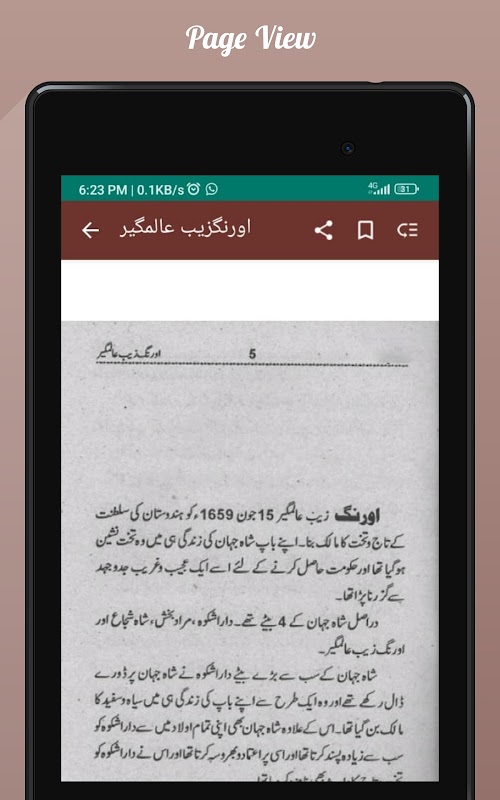 Page View
6:23 PM | 0.1KB/s
4G
31
اورنگزیب عالمگیر
اورنگ زیب عالمگیر
5
اورنگ زیب عالمگیر 15 جون 1659ء کو ہندوستان کی سلطنت
کے تاج و تخت کا مالک بنا۔ اپنے باپ شاہ جہان کی زندگی ہی میں وہ تخت نشین
ہوگیا تھا اور حکومت حاصل کرنے کے لئے اسے ایک عجیب و غریب جدوجہد
سے گزرنا پڑا تھا۔
دراصل شاہ جہان کے 4 بیٹے تھے۔ داراشکوہ، مراد بخش، شاہ شجاع اور
اورنگ زیب عالمگیر۔
شاہ جہان کے سب سے بڑے بیٹے داراشکوہ نے شاہ جہان پر ڈورے
ڈال رکھے تھے اور وہ ایک طرح سے اپنے باپ کی زندگی ہی میں سیاہ و سفید کا
مالک بن گیا تھا۔ اس کے علاوہ شاہ جہان بھی اپنی تمام اولاد میں سے داراشکوہ کو
سب سے زیادہ پسند کرتا تھا اور اسی پر اعتماد و بھروسہ کرتا تھا اور اس نے داراشکوہ کو